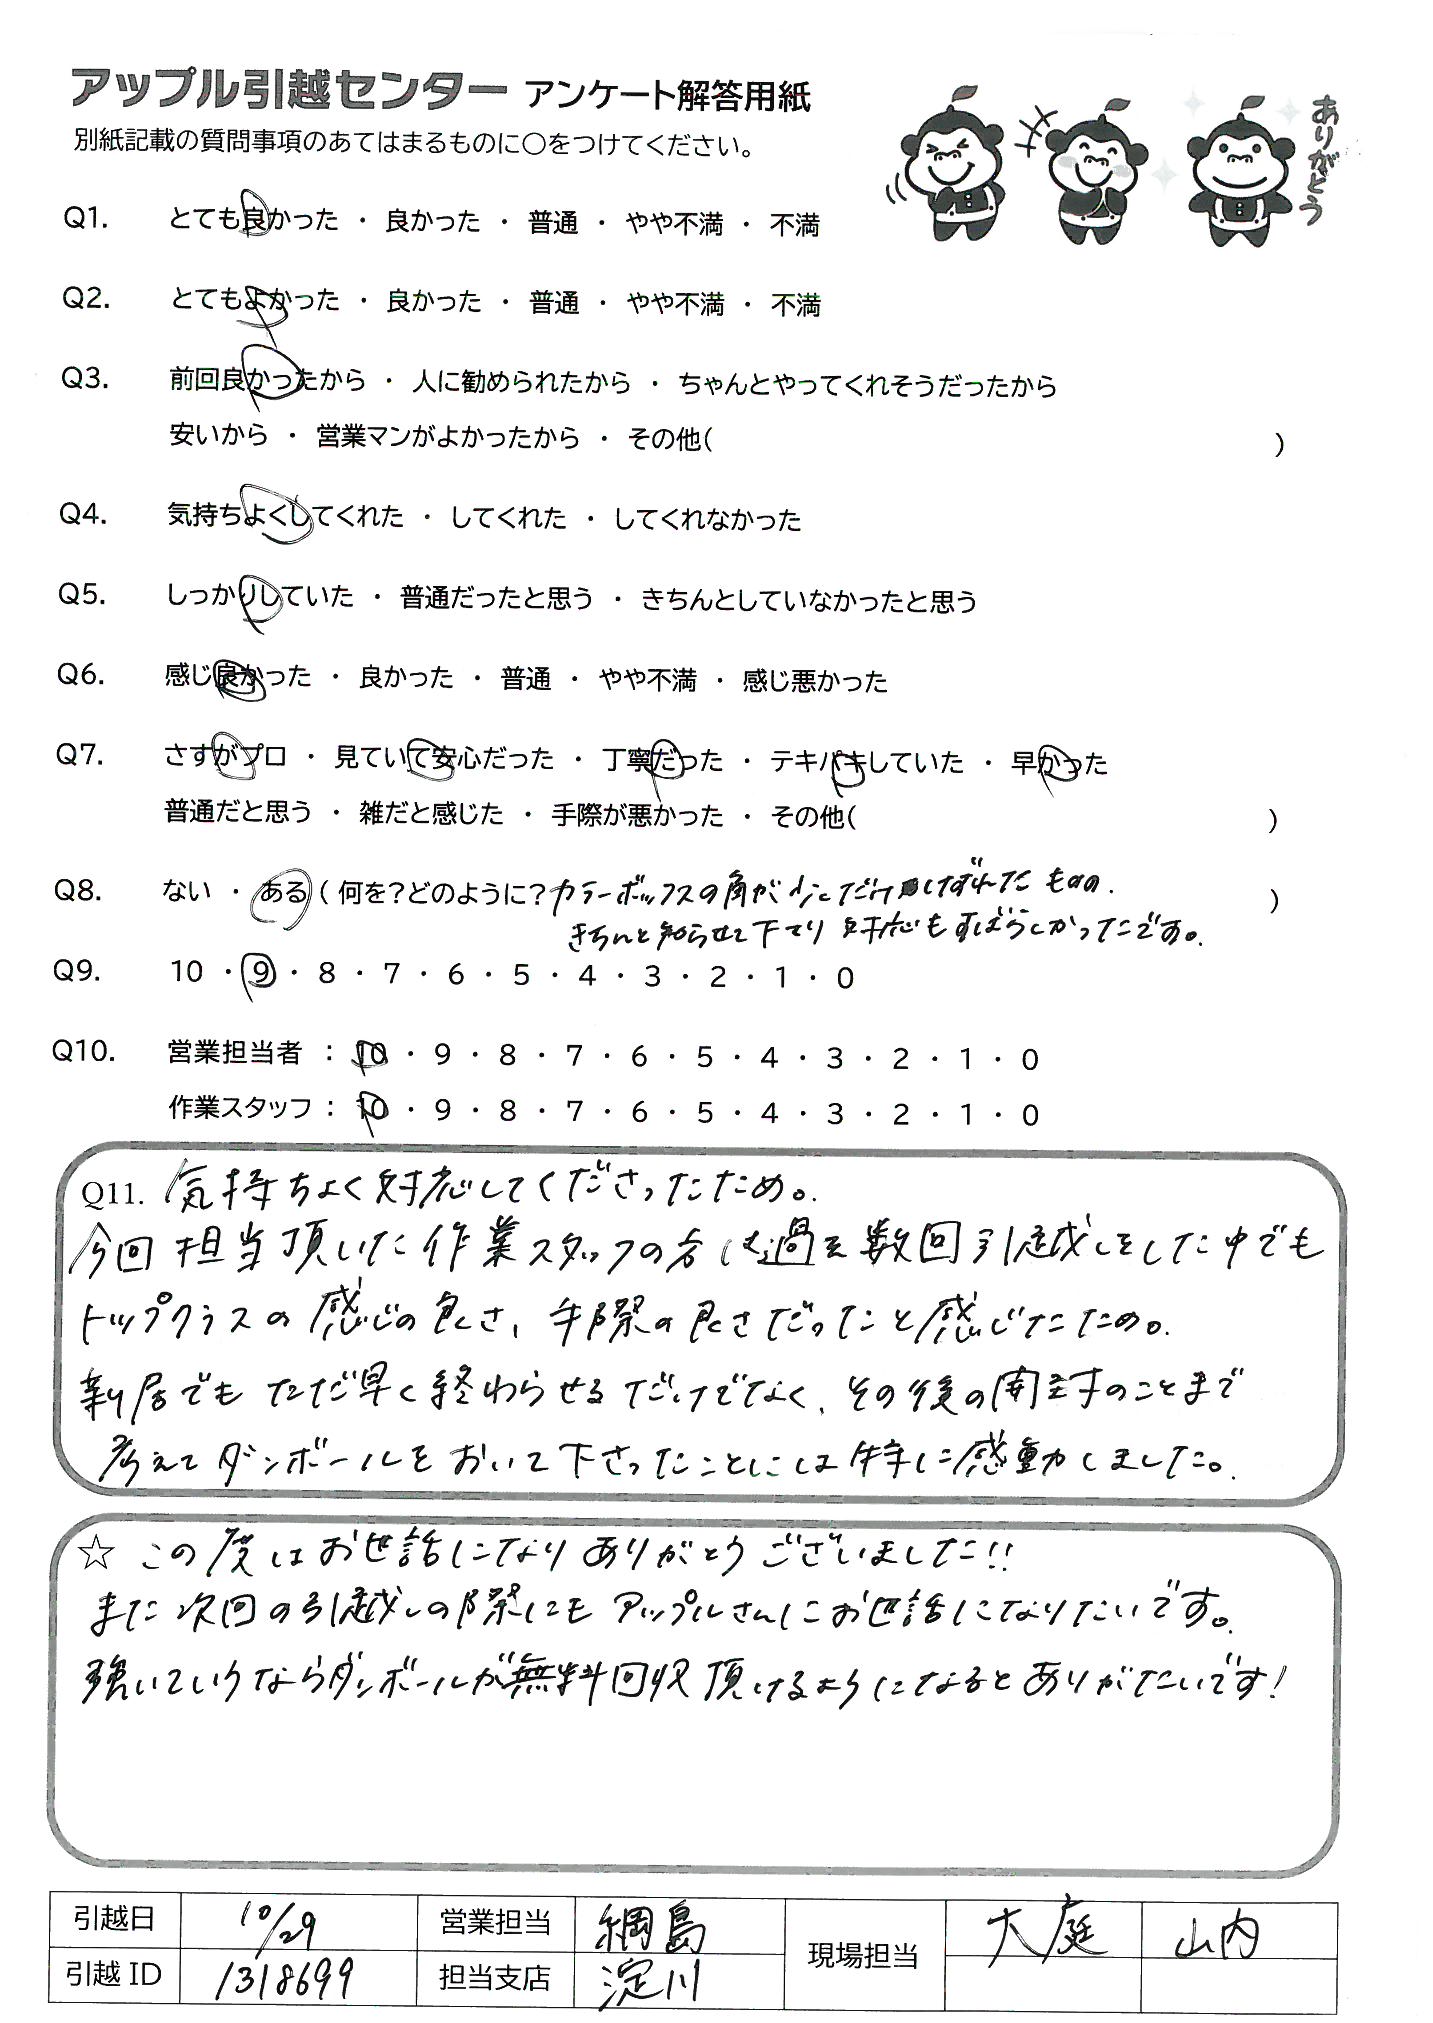 アップル引越センター アンケート解答用紙
別紙記載の質問事項のあてはまるものに○をつけてください。
ありがとう
Q1. とても良かった ・ 良かった ・ 普通 ・ やや不満 ・ 不満
Q2. とてもよかった ・ 良かった ・ 普通 ・ やや不満 ・ 不満
Q3. 前回良かったから ・ 人に勧められたから ・ ちゃんとやってくれそうだったから
安いから ・ 営業マンがよかったから ・ その他( )
Q4. 気持ちよくしてくれた ・ してくれた ・ してくれなかった
Q5. しっかりしていた ・ 普通だったと思う ・ きちんとしていなかったと思う
Q6. 感じ良かった ・ 良かった ・ 普通 ・ やや不満 ・ 感じ悪かった
Q7. さすがプロ ・ 見ていて安心だった ・ 丁寧だった ・ テキパキしていた ・ 早かった
普通だと思う ・ 雑だと感じた ・ 手際が悪かった ・ その他( )
Q8. ない ・ ある ( 何を?どのように? カラーボックスの角が少しだけけずれたものの、 )
きちんと知らせて下さり対応もすばらしかったです。
Q9. 10 ・ 9 ・ 8 ・ 7 ・ 6 ・ 5 ・ 4 ・ 3 ・ 2 ・ 1 ・ 0
Q10. 営業担当者 : 10 ・ 9 ・ 8 ・ 7 ・ 6 ・ 5 ・ 4 ・ 3 ・ 2 ・ 1 ・ 0
作業スタッフ : 10 ・ 9 ・ 8 ・ 7 ・ 6 ・ 5 ・ 4 ・ 3 ・ 2 ・ 1 ・ 0
Q11. 気持ちよく対応してくださったため。
今回担当頂いた作業スタッフの方は過去数回引越しをした中でも
トップクラスの感じの良さ、手際の良さだったと感じたため。
新居でもただ早く終わらせるだけでなく、その後の開封のことまで
考えてダンボールをおいて下さったことには特に感動しました。
☆ この度はお世話になりありがとうございました!!
また次回の引越しの際にもアップルさんにお世話になりたいです。
強いていうならダンボールが無料回収頂けるようになるとありがたいです!
引越日 10/29 営業担当 綱島 現場担当 大庭 山内
引越ID 1318699 担当支店 淀川